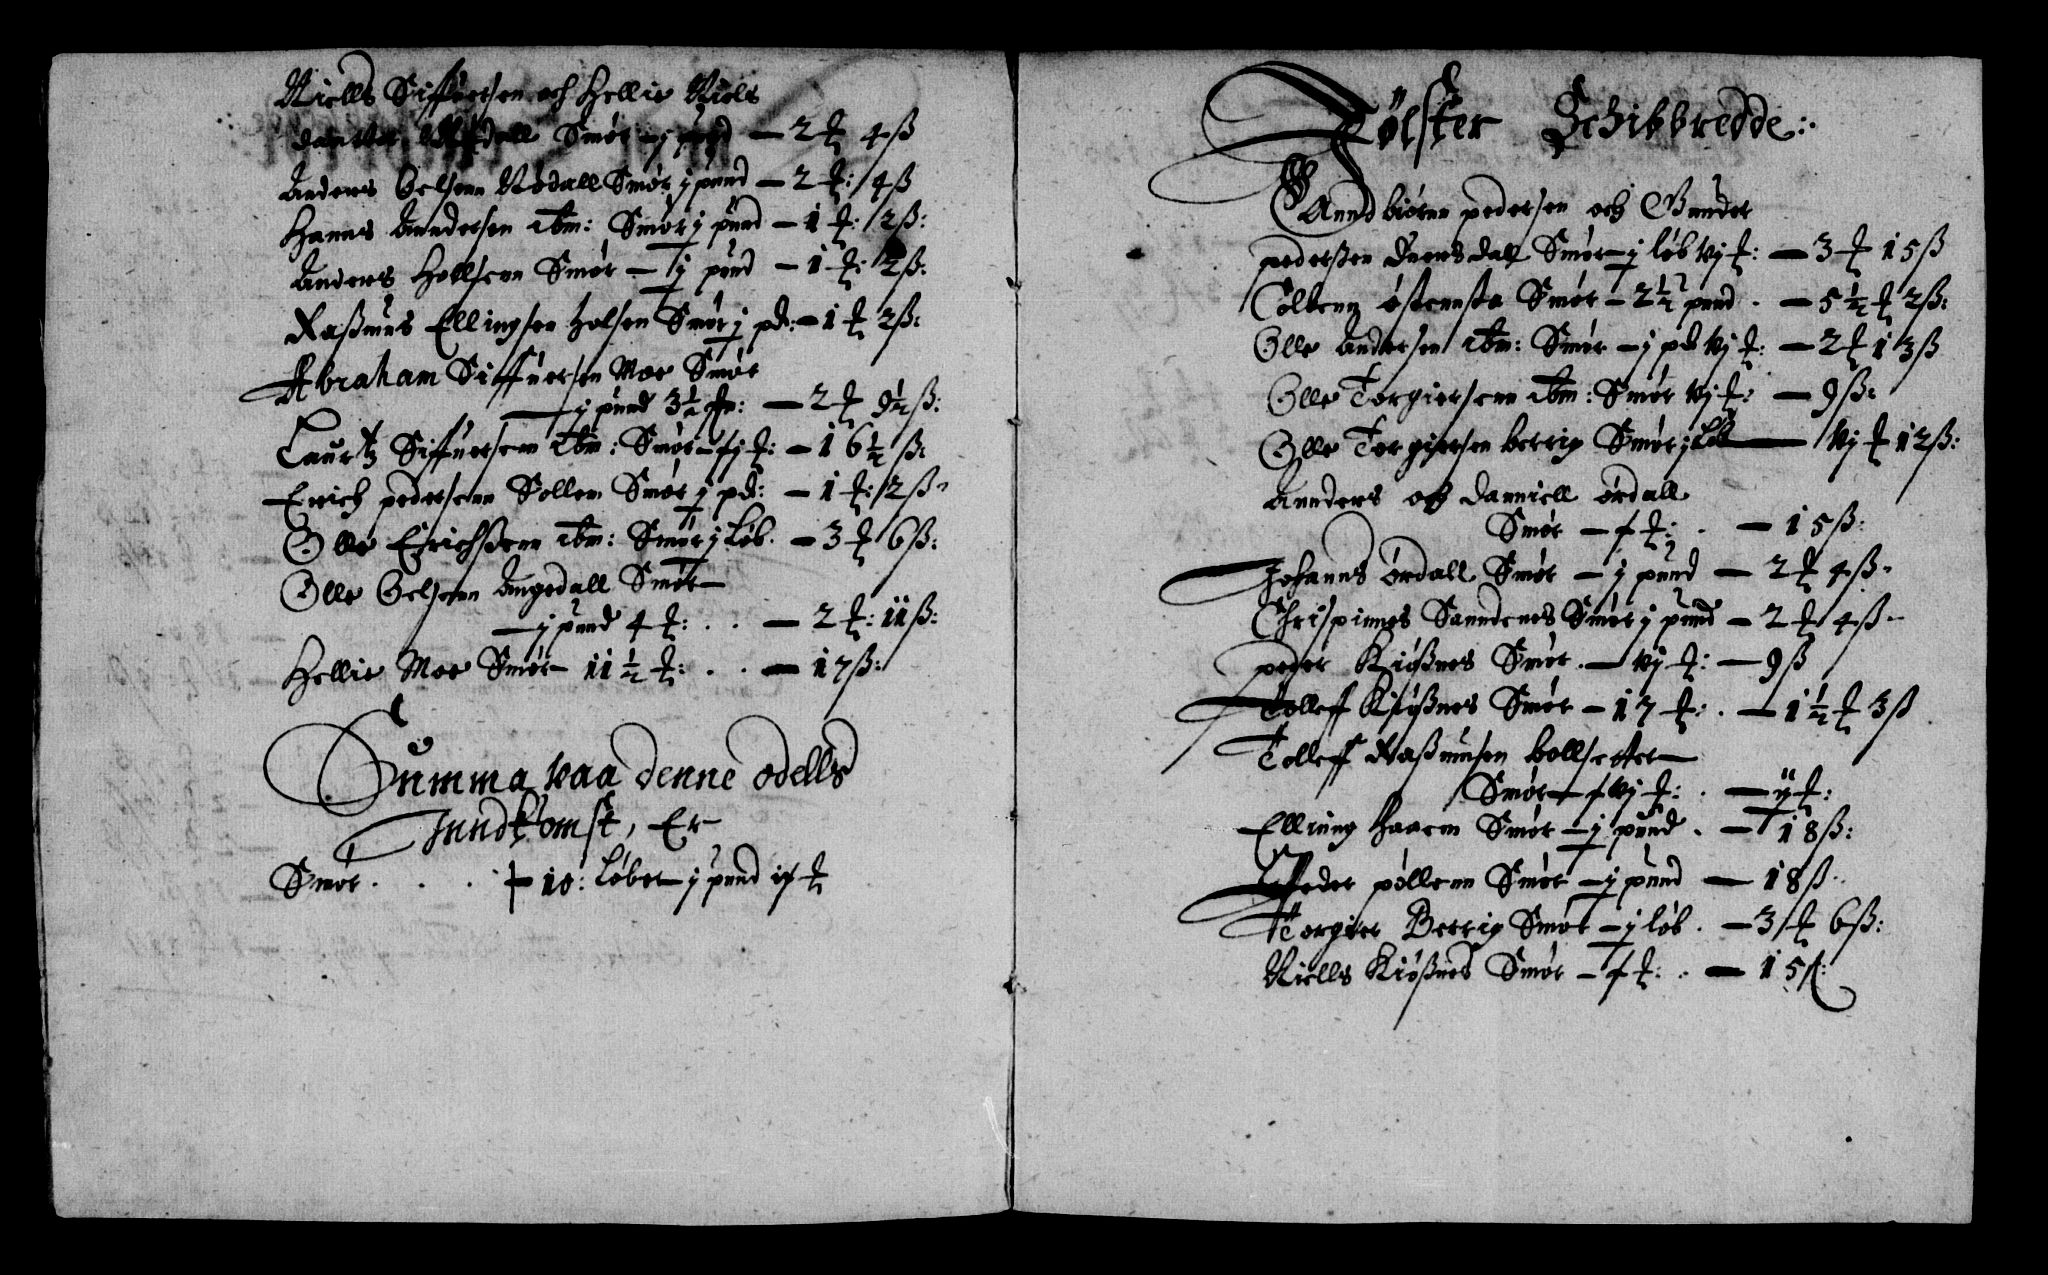 Niells Siffuersen och Hellie Niels
daatter Smør j pund — 2 ₰ 4 ß
Anders Oelsenn Nødall Smør j pund — 2 ₰: 4 ß
Hanns Anndersen Ibm: Smør j pund — 1 ₰: 12 ß:
Anders Hollsenn Smør — j pund — 1 ₰: 12 ß:
Raßmus Ellingsen Holsen Smør j pd: — 1 ₰ 12 ß:
Abraham Siffuersen Moe Smør
— j pund 3½ — 2 ₰ 9½ ß:
Laurtz Siffuersenn Ibm: Smør — ₰: — 16½ ß:
Erich pedersenn Sollem Smør j pd: — 1 ₰: 12 ß
Olle Erichßenn Ibm: Smør j Løb. — 3 ₰ 6 ß:
Olle Oelsenn Angedall Smør —
— j pund 4 ₰: . . — 2 ₰: 11 ß:
Hellie Moe Smør — 11½ ₰: . . — 17 ß:
Summa paa denne odells
Inndkomst, Er
Smør . . . . 10: Løber — j pund ₰
Jølster Schibbredde:
Anndbiørnn pedersen och Gunder
pederßen Duensdall Smør — j løb vj ₰: — 3 ₰ 15 ß
Colbenn østennsta Smør — 2½ pund . — 5½ ₰ 2 ß:
Olle Andersen Ibm: Smør — j pd vj ₰: — 2 ₰ 13 ß
Olle Torgiersenn Ibm: Smør vj ₰: — 9 ß:
Olle Torgiersen berrig Smør j Løb — vj ₰ 12 ß:
Annders och Danniell ørdall
Smør — ₰: . — 15 ß:
Johanns ørdall Smør — j pund — 2 ₰ 4 ß
Chrispinnes Sanndenes Smør j pund — 2 ₰ 4 ß
peder Kiøßnes Smør . — vj ₰: — 9 ß
Tolleff Kiøßnes Smør — 17 ₰: . — 1½ ₰ 3 ß
Tolleff Raßmusen bollsetter —
Smør — vj ₰: . — ij ₰:
Elling Haaenn Smør — j pund . — 18 ß:
Peder pøllenn Smør — j pund — 18 ß
Torgier Berrig Smør — j løb . — 3 ₰ 6 ß:
Niells Kiøßnes Smør — ₰: . — 15 ß: